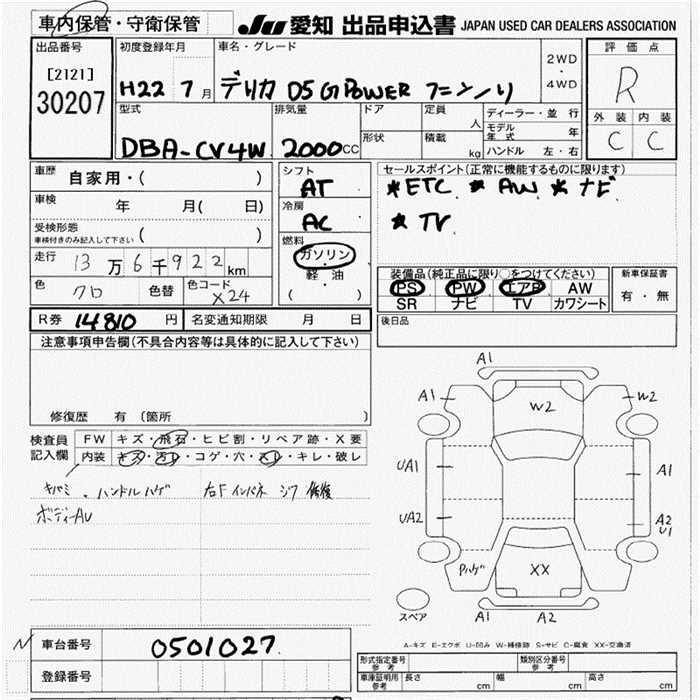 車内保管・守衛保管 JU 愛知 出品申込書 JAPAN USED CAR DEALERS ASSOCIATION
出品番号 [2121] 30207
初度登録年月 H22 7月
車名・グレード デリカ D5 G POWER
2WD・4WD
評価点 R
外装 内装
C C
型式 DBA-CV4W
排気量 2000CC
ドア 定員 人
形状 積載 kg
ディーラー・並行
モデル年式 年
ハンドル 左・右
車歴 自家用・( )
車検 年 月( 日)
受検形態 車検付きのみ記入して下さい ( )
走行 13万6千922km
色 クロ 色替 色コード X24
シフト AT
冷房 AC
燃料 ガソリン・軽油 ( )
セールスポイント(正常に機能するものに限ります)
*ETC *AW *ナビ
*TV
装備品(純正品に限り○をつけてください)
PS PW エアB AW
SR ナビ TV カワシート
新車保証書 有・無
R券 14810円 名変通知期限 月 日
後日品
注意事項申告欄(不具合内容等は具体的に記入して下さい)
修復歴 有(箇所 )
検査員記入欄 FW キズ・飛石・ヒビ割・リペア跡・X要
内装 キズ・汚レ・コゲ・穴・スレ・キレ・破レ
ハンドルハゲ 右Fインパネ
A1
A1 W2 W2
UA1 A1
UA2 A2 U1
Pハゲ XX
スペア A1 A2
A-キズ E-エクボ U-凹み W-補修跡 S-サビ C-腐食 XX-交換済
車台番号 0501027
登録番号
形式指定番号 参考 類別区分番号 参考
車庫証明用 参考 長さ cm 幅 cm 高さ cm